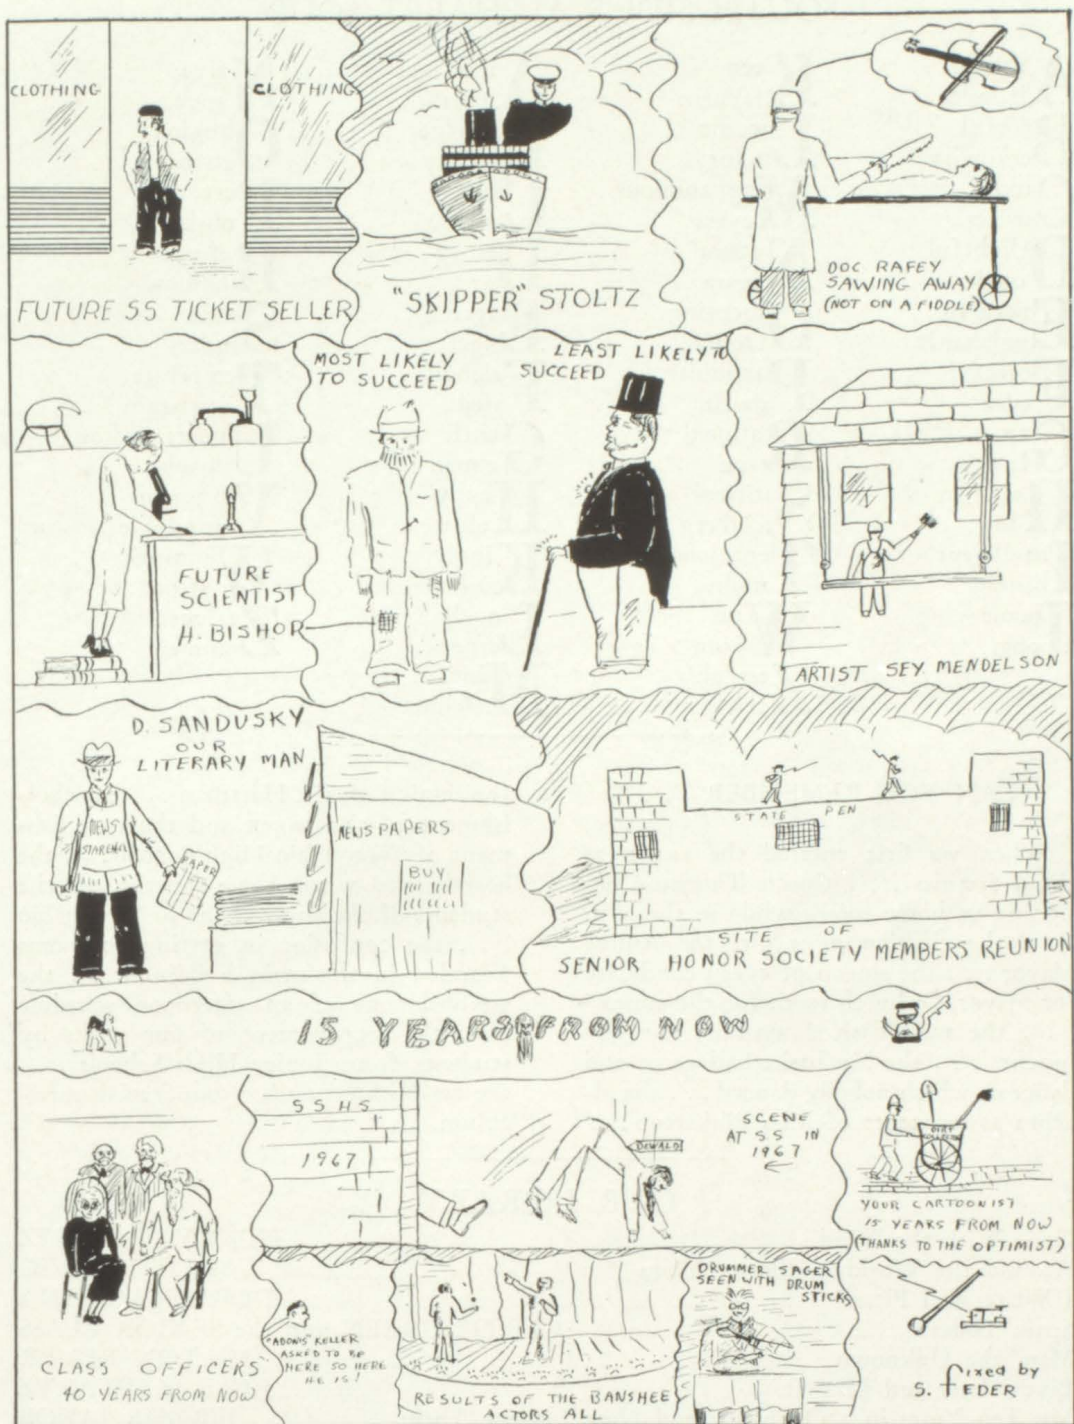 CLOTHING
CLOTHING
FUTURE SS TICKET SELLER
"SKIPPER" STOLTZ
DOC RAFEY
SAWING AWAY
(NOT ON A FIDDLE)
FUTURE
SCIENTIST
H. BISHOP
MOST LIKELY
TO SUCCEED
LEAST LIKELY TO
SUCCEED
ARTIST SEY MENDELSON
D. SANDUSKY
OUR
LITERARY MAN
NEWS
PAPER
NEWSPAPERS
BUY
STATE PEN
SITE OF
SENIOR HONOR SOCIETY MEMBERS REUNION
15 YEARS FROM NOW
CLASS OFFICERS
40 YEARS FROM NOW
SSHS
1967
OSWALD
SCENE
AT S.S. IN
1967
DIRT
YOUR CARTOONIST
15 YEARS FROM NOW
(THANKS TO THE OPTIMIST)
"ADONIS" KELLER
ASKED TO BE
HERE SO HERE
HE IS!
RESULTS OF THE BANSHEE
ACTORS ALL
DRUMMER SAGER
SEEN WITH DRUM
STICKS
fixed by
S. FEDER